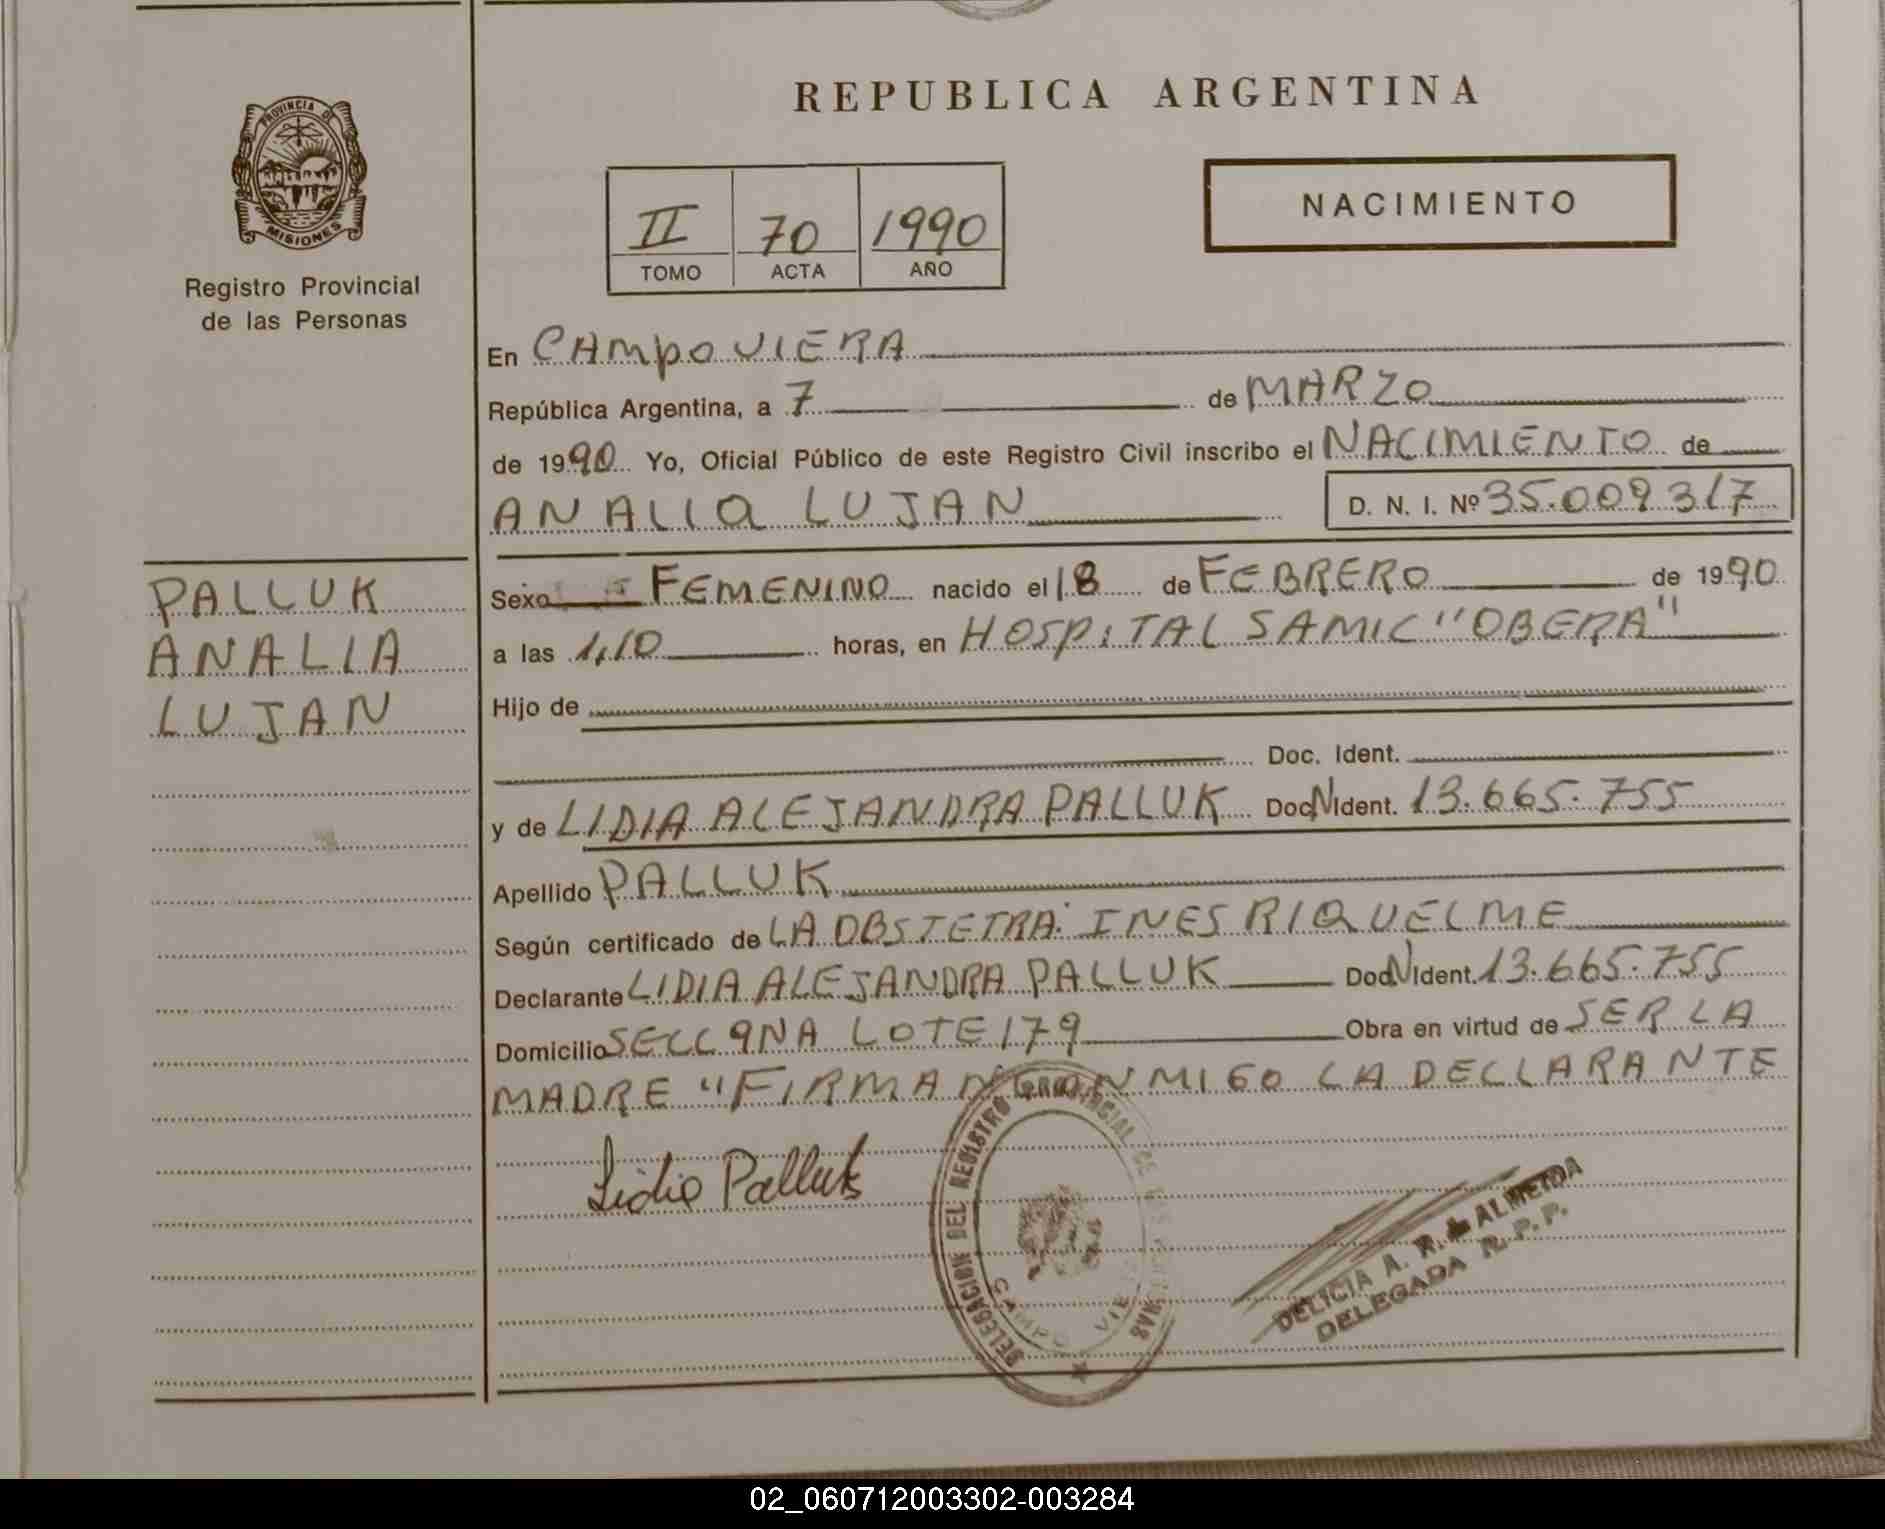 REPUBLICA ARGENTINA
PROVINCIA DE
MISIONES
Registro Provincial
de las Personas
NACIMIENTO
II 70 1990
TOMO ACTA AÑO
En CAMPO VIERA
República Argentina, a 7 de MARZO
de 1990 Yo, Oficial Público de este Registro Civil inscribo el NACIMIENTO de
ANALIA LUJAN D. N. I. Nº 35.009.317
PALLUK
ANALIA
LUJAN
Sexo FEMENINO nacido el 18 de FEBRERO de 1990
a las 1,10 horas, en HOSPITAL SAMIC "OBERA"
Hijo de
Doc. Ident.
y de LIDIA ALEJANDRA PALLUK Doc. N Ident. 13.665.755
Apellido PALLUK
Según certificado de LA OBSTETRA: INES RIQUELME
Declarante LIDIA ALEJANDRA PALLUK Doc. N Ident. 13.665.755
Domicilio SECC 9NA LOTE 179 Obra en virtud de SER LA
MADRE "FIRMAN CONMIGO LA DECLARANTE
Lidia Palluk
DELEGACION DEL REGISTRO PROVINCIAL DE LAS PERSONAS
CAMPO VIERA
DELICIA A. R. de ALMEIDA
DELEGADA R. P. P.
02_060712003302-003284